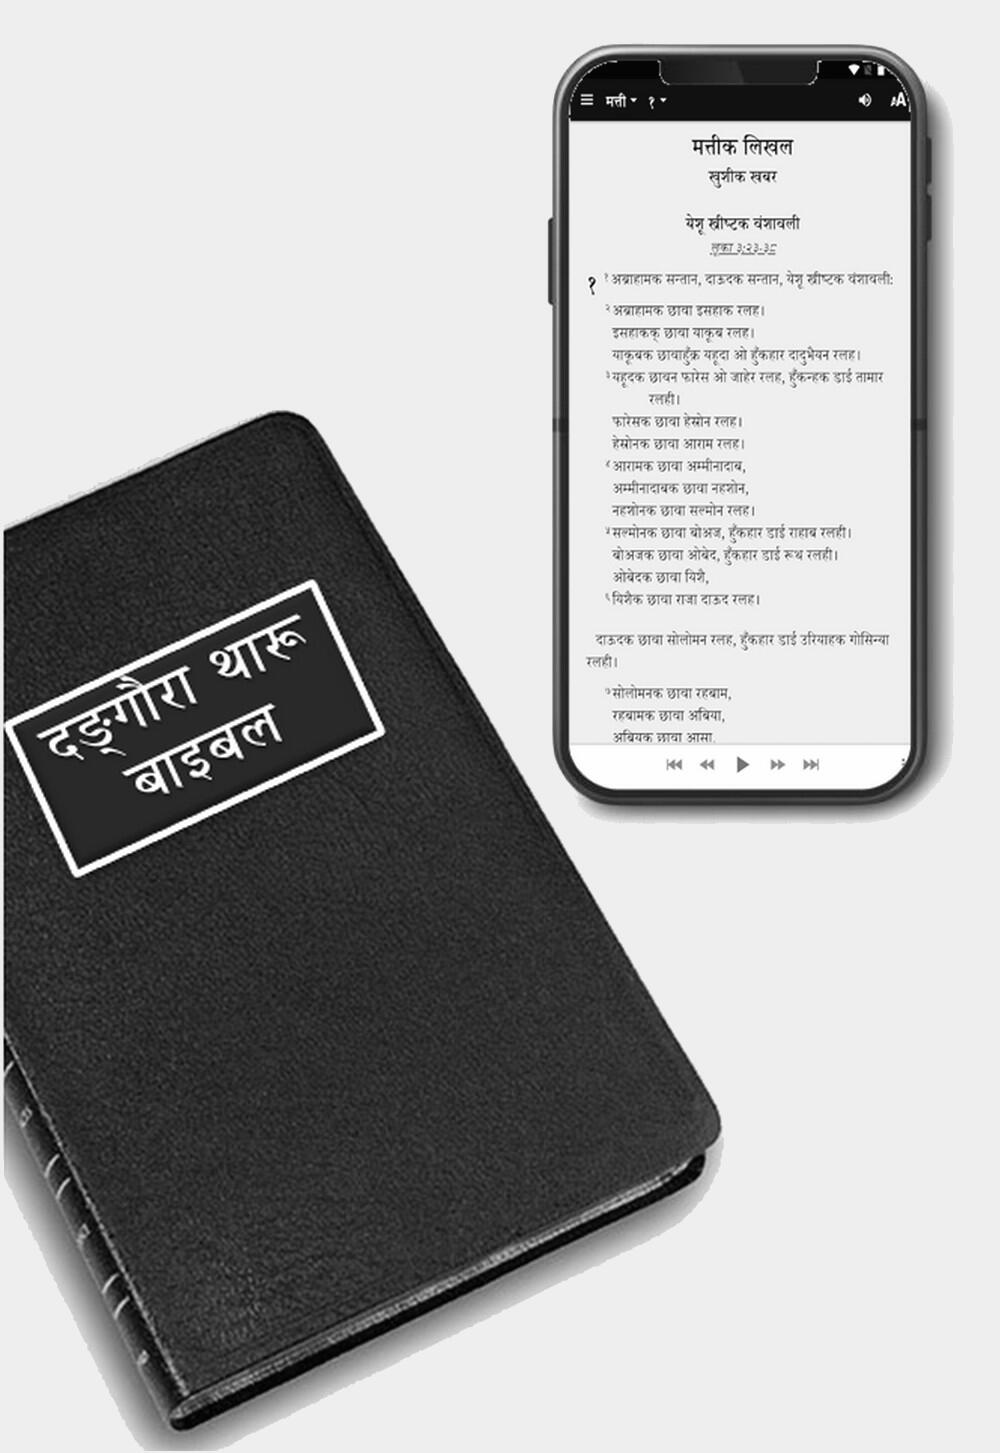 मत्ती १
मत्तीक लिखल
खुशीक खबर
येशू ख्रीष्टक वंशावली
लूका ३:२३-३८
१ १ अब्राहामक सन्तान, दाऊदक सन्तान, येशू ख्रीष्टक वंशावली:
२ अब्राहामक छावा इसहाक रलह।
इसहाकक् छावा याकूब रलह।
याकूबक छावाहुँक्र यहूदा ओ हुँकहार दादुभैयन रलह।
३ यहूदक छावन फारेस ओ जाहेर रलह, हुँकन्हक डाई तामार
रलही।
फारेसक छावा हेस्रोन रलह।
हेस्रोनक छावा आराम रलह।
४ आरामक छावा अम्मीनादाब,
अम्मीनादाबक छावा नहशोन,
नहशोनक छावा सल्मोन रलह।
५ सल्मोनक छावा बोअज, हुँकहार डाई राहाब रलही।
बोअजक छावा ओबेद, हुँकहार डाई रूथ रलही।
ओबेदक छावा यिशै,
६ यिशैक छावा राजा दाऊद रलह।
दाऊदक छावा सोलोमन रलह, हुँकहार डाई उरियाहक गोसिन्या
रलही।
७ सोलोमनक छावा रहबाम,
रहबामक छावा अबिया,
अबियक छावा आसा,
दङ्गौरा थारू
बाइबल